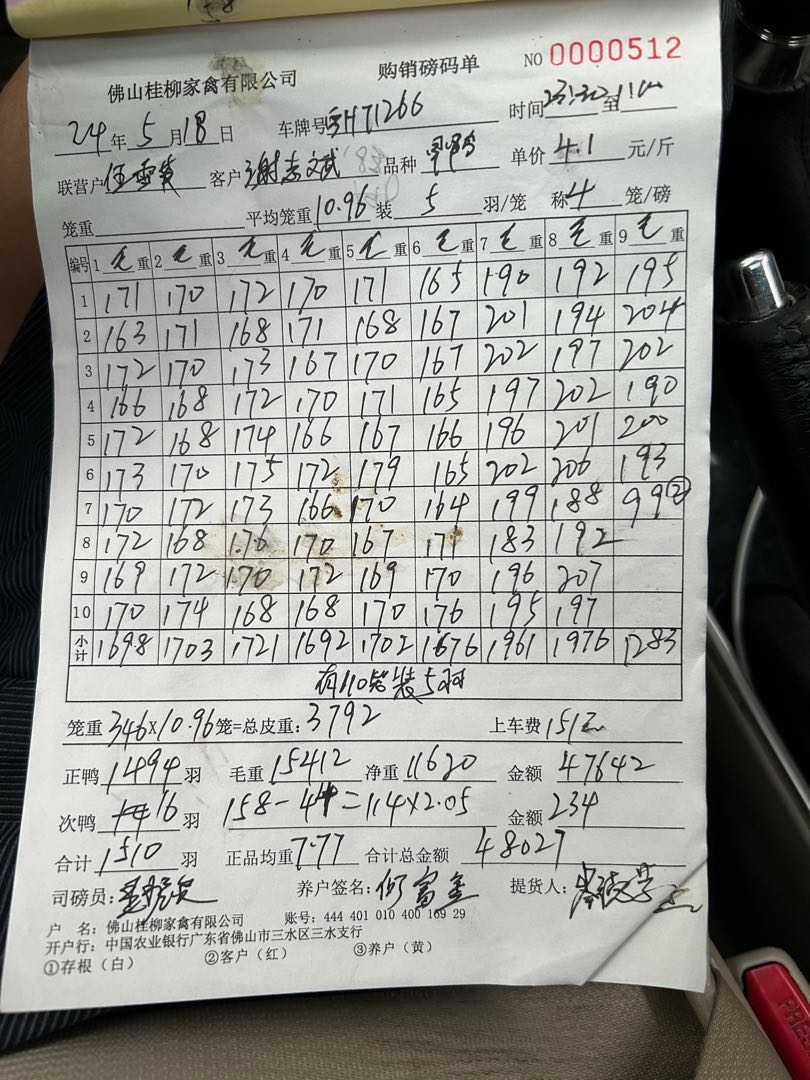 佛山桂柳家禽有限公司 购销磅码单 NO 0000512
24年5月18日 车牌号 H71266 时间 至
联营户 客户 谢志斌 品种 单价 4.1 元/斤
笼重 平均笼重 10.96 装 5 羽/笼 称 4 笼/磅
编号 1 毛重 2 毛重 3 毛重 4 毛重 5 毛重 6 毛重 7 毛重 8 毛重 9 毛重
1 171 170 172 170 171 165 190 192 195
2 163 171 168 171 168 167 201 194 204
3 172 170 173 167 170 167 202 197 202
4 166 168 172 170 171 165 197 202 190
5 172 168 174 166 167 166 196 201 200
6 173 170 175 172 179 165 202 206 193
7 170 172 173 166 170 164 199 188 99②
8 172 168 170 170 167 171 183 192
9 169 172 170 172 169 170 196 207
10 170 174 168 168 170 176 195 197
小计 1698 1703 1721 1692 1702 1676 1961 1976 1283
有110笼装5羽
笼重 346×10.96 笼=总皮重: 3792 上车费 151
正鸭 1494 羽 毛重 15412 净重 11620 金额 47642
次鸭 16 羽 158-44=114×2.05 金额 234
合计 1510 羽 正品均重 7.77 合计总金额 48027
司磅员: 养户签名: 何富 提货人:
户 名: 佛山桂柳家禽有限公司 账号: 444 401 010 400 169 29
开户行: 中国农业银行广东省佛山市三水区三水支行
①存根（白） ②客户（红） ③养户（黄）